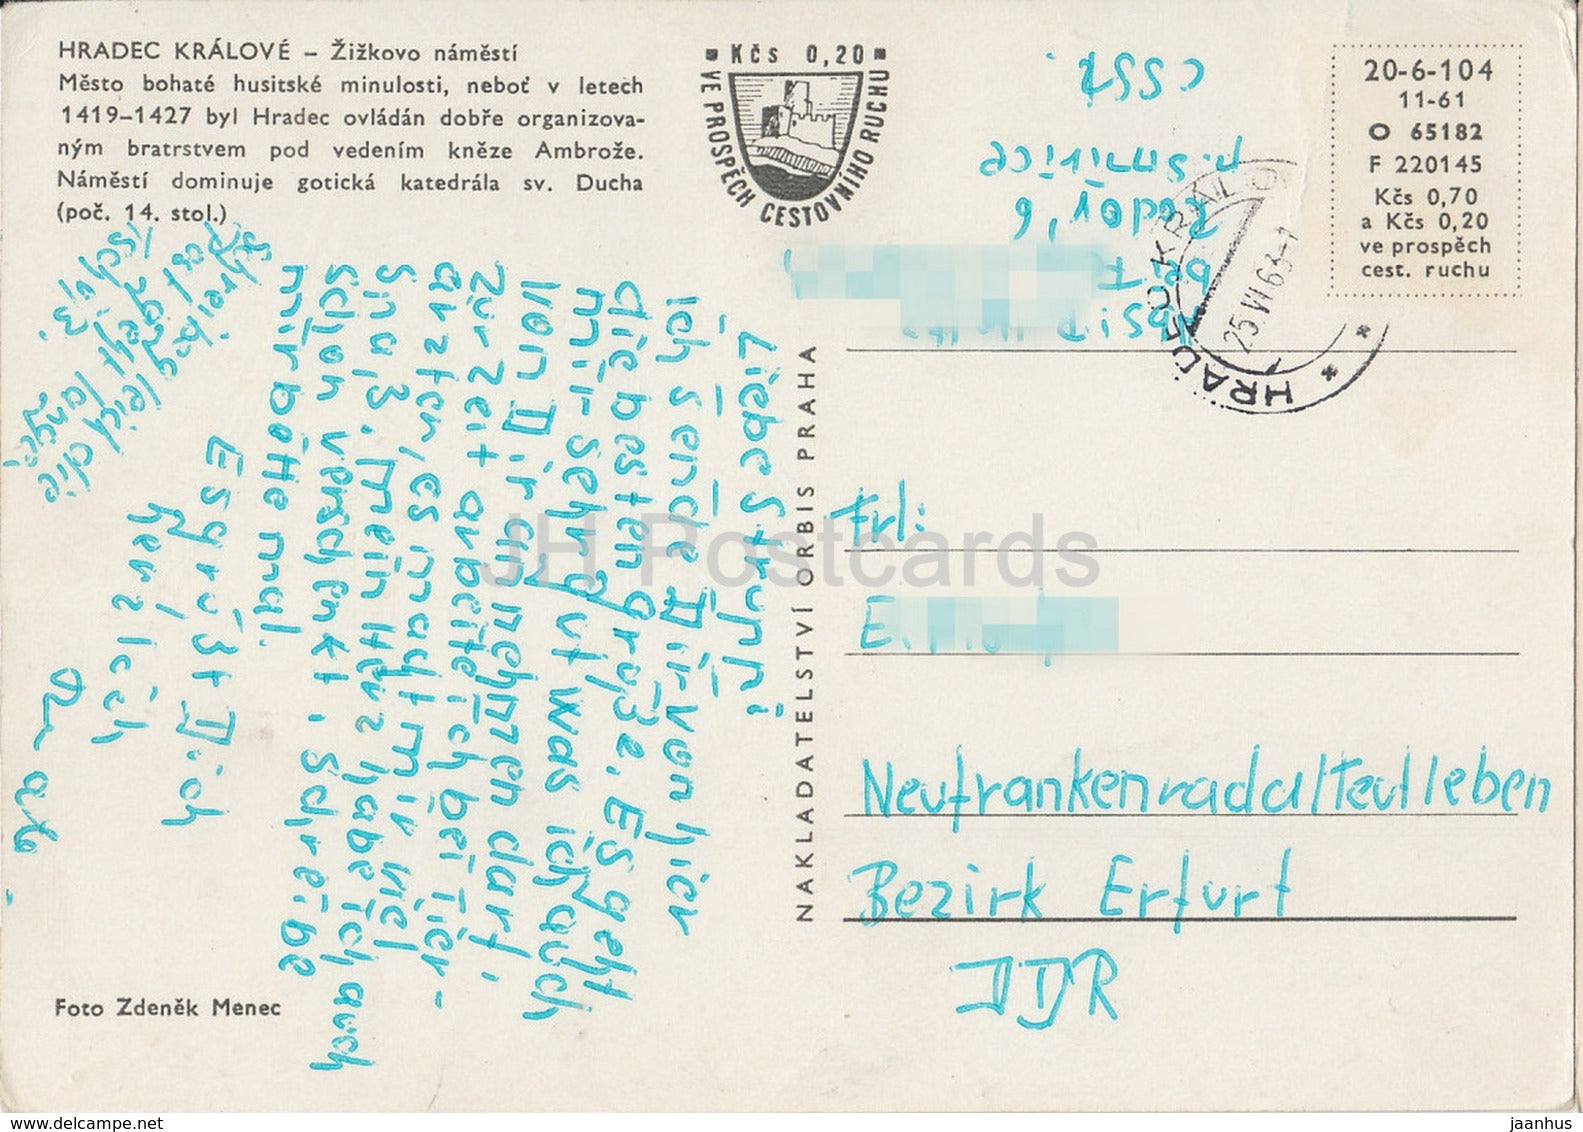 HRADEC KRÁLOVÉ – Žižkovo náměstí
Město bohaté husitské minulosti, neboť v letech
1419–1427 byl Hradec ovládán dobře organizova-
ným bratrstvem pod vedením kněze Ambrože.
Náměstí dominuje gotická katedrála sv. Ducha
(poč. 14. stol.)
Kčs 0,20
VE PROSPĚCH CESTOVNÍHO RUCHU
20-6-104
11-61
O 65182
F 220145
Kčs 0,70
a Kčs 0,20
ve prospěch
cest. ruchu
ČSSR.
p. Smiřice
bei
HRADEC KRÁLOVÉ
25.VI.63-1
Liebe Struppi
Ich sende Dir von hier
die besten grüße. Es geht
mir sehr gut was ich auch
von Dir annehmen darf.
Zur Zeit arbeite ich bei Tier-
arzten, es macht mir viel
Spaß. Mein Herz habe ich auch
schon verschenkt. Schreibe
mir bitte mal.
Es grüßt Dich
herzlich
Schreib gleich die
Post geht lange
NAKLADATELSTVÍ ORBIS PRAHA
Frl:
E.
Neufrankenroda/Teutleben
Bezirk Erfurt
DDR
Foto Zdeněk Menec
JH Postcards
www.delcampe.net
jaanhus